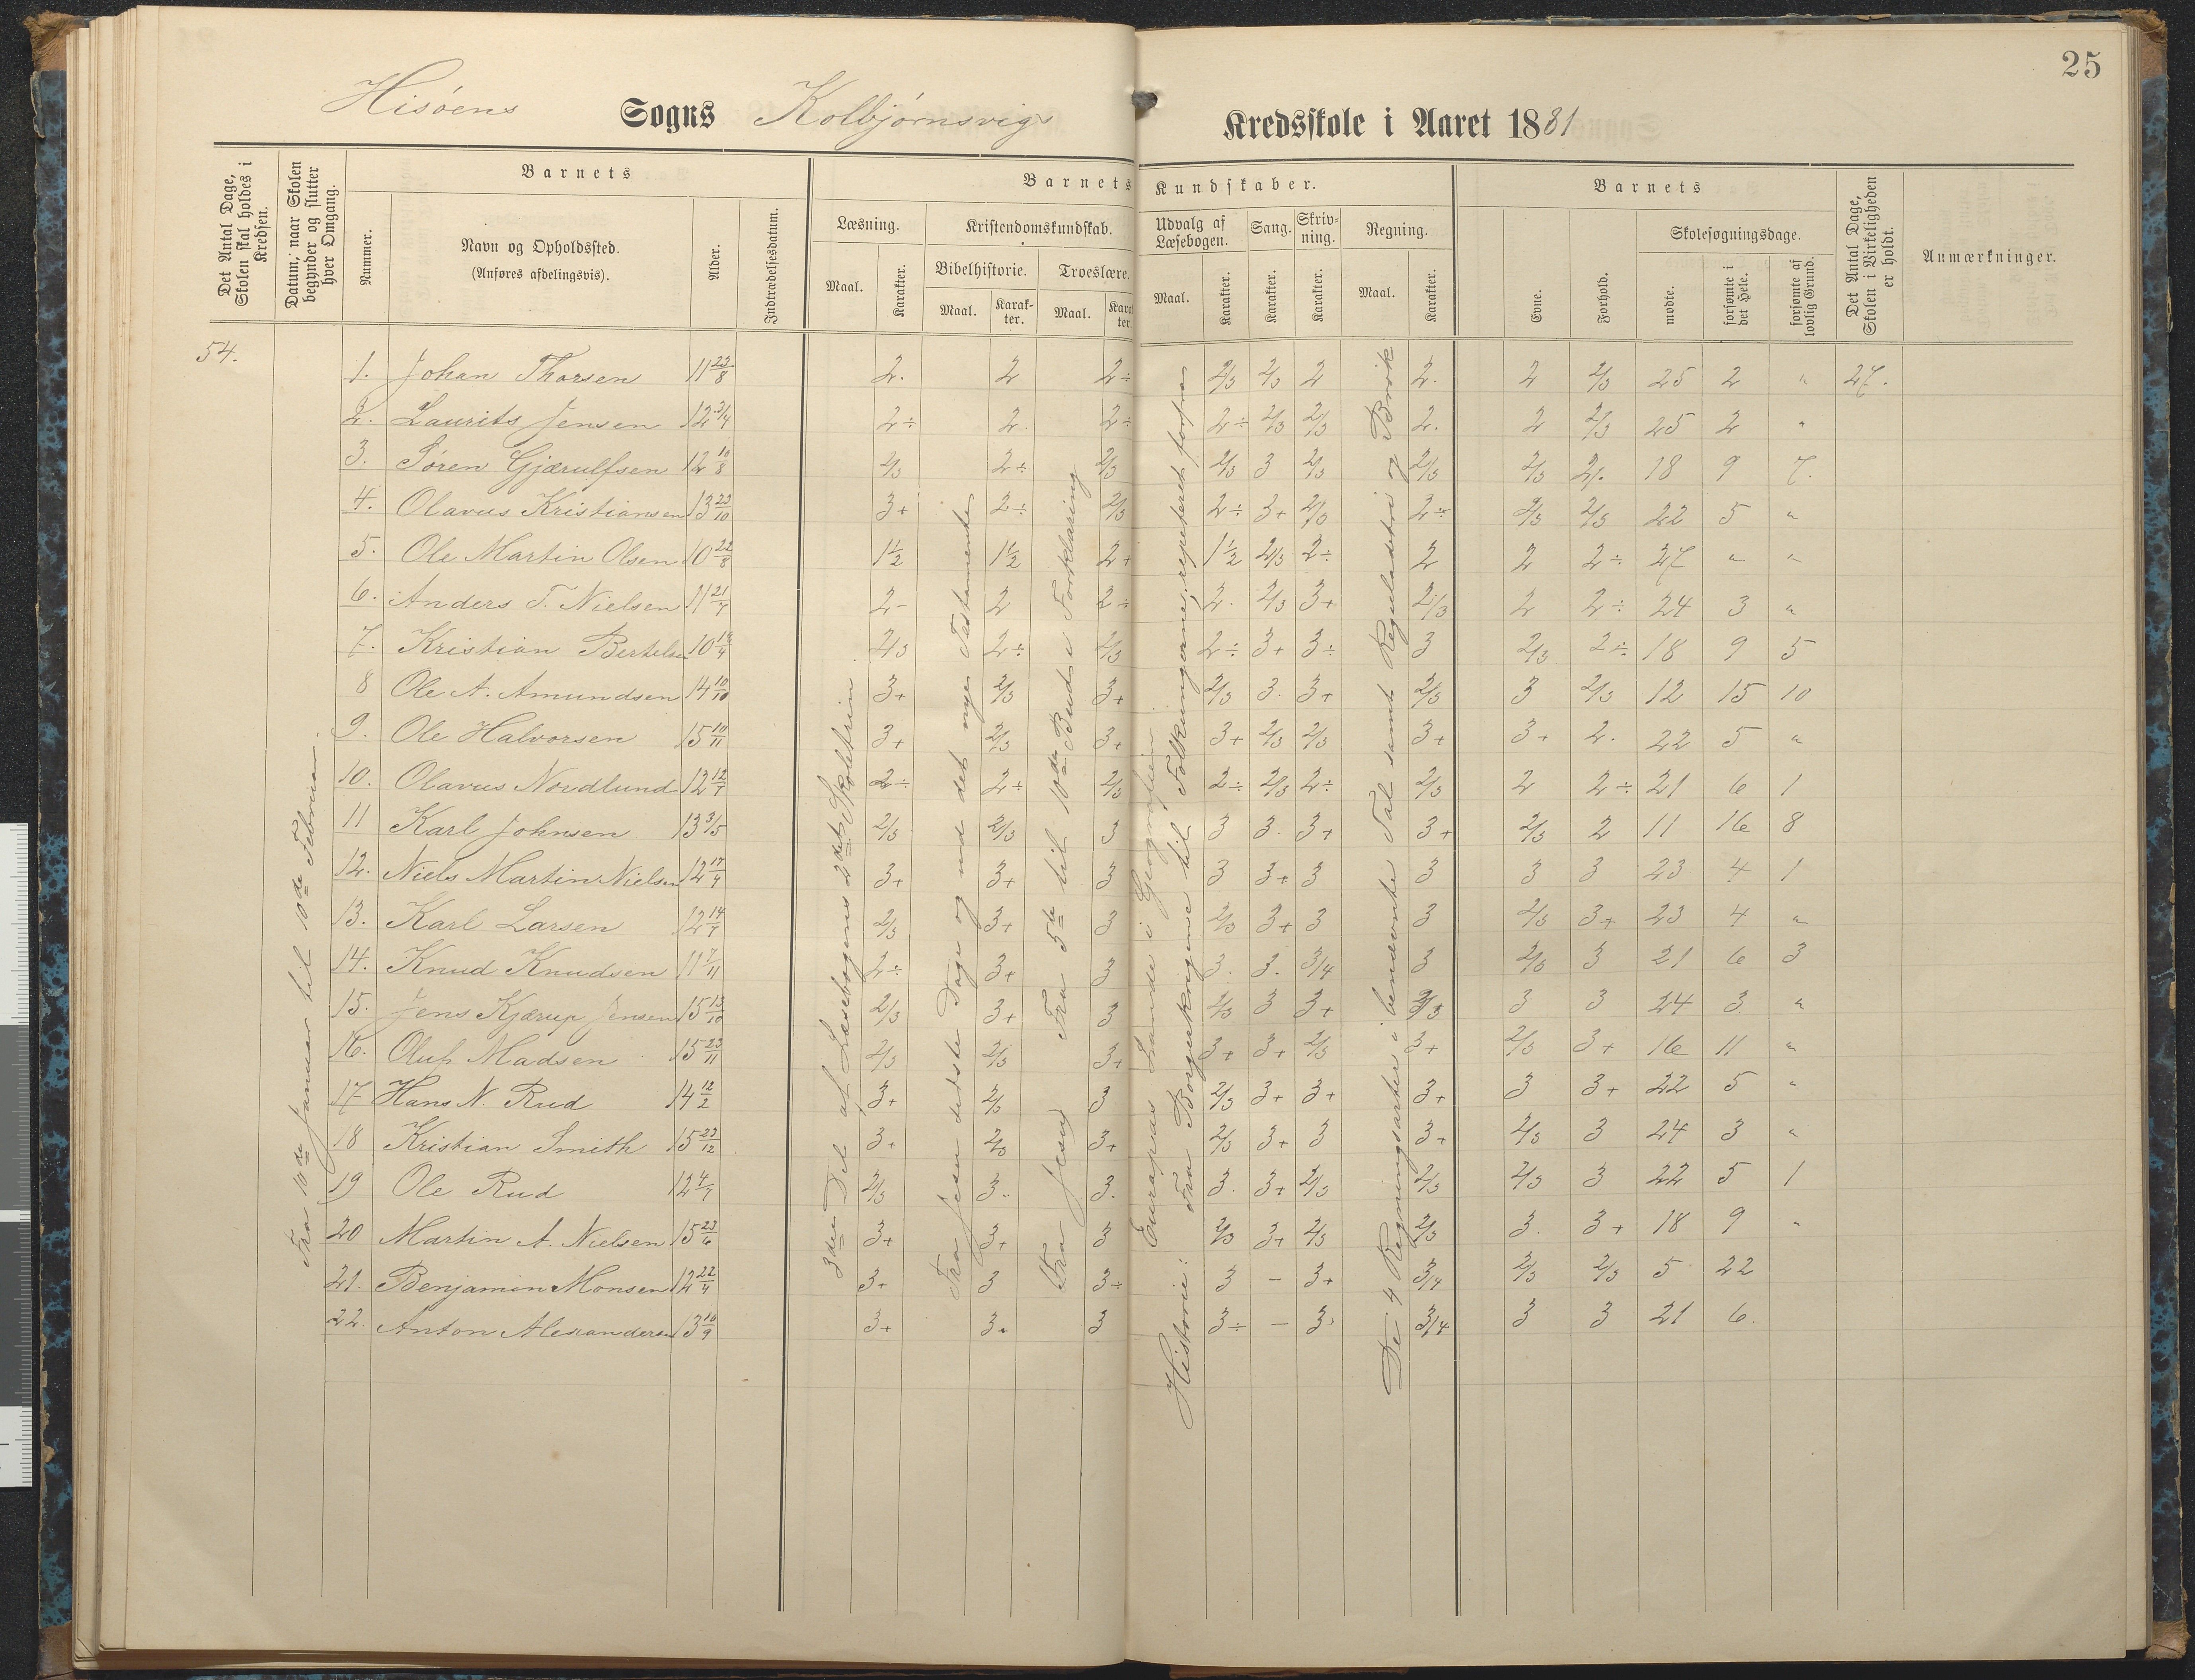 25
Hisøens Sogns Kolbjørnsvigs Kredsskole i Aaret 1881
Det Antal Dage, Skolen skal holdes i Kredsen.
Datum, naar Skolen begynder og slutter hver Omgang.
Barnets
Nummer.
Navn og Opholdssted.
(Anføres afdelingsvis).
Alder.
Indtrædelsesdatum.
Barnets Kundskaber.
Læsning.
Maal. Karakter.
Kristendomskundskab.
Bibelhistorie. Troeslære.
Maal. Karakter. Maal. Karakter.
Udvalg af Læsebogen.
Maal. Karakter.
Sang.
Karakter.
Skrivning.
Karakter.
Regning.
Maal. Karakter.
Barnets
Evne. Forhold.
Skolesøgningsdage.
mødte. forsømte i det Hele. forsømte af lovlig Grund.
Det Antal Dage, Skolen i Virkeligheden er holdt.
Anmærkninger.
54.
Fra 10de Januar til 10de Februar.
3die Del af Læsebogens 2det Skoletrin
Fra Jesu sidste Dage og ud det nye Testamente
Fra Jesus Fra 5te til 10de Buds Forklaring
Europas Lande i Geografien
Historie: Fra Borgerkrigene til Folkungerne, repeteret forfra
De 4 Regningsarter i benævnte Tal samt Reguladetri og Brøk
1. Johan Thorsen 11 23/8 2. 2 2÷ 2/3 2/3 2 2. 2 2/3 25 2 " 27.
2. Laurits Jensen 12 3/4 2÷ 2. 2÷ 2÷ 2/3 2/3 2. 2 2/3 25 2 "
3. Søren Gjærulfsen 12 10/8 2/3 2÷ 2/3 2/3 3 2/3 2/3 2/3 2. 18 9 7.
4. Olavus Kristiansen 13 23/10 3+ 2÷ 2/3 2÷ 3+ 2/3 2÷ 2/3 2/3 22 5 "
5. Ole Martin Olsen 10 22/8 1½ 1½ 2+ 1½ 2/3 2÷ 2 2 2÷ 27 " "
6. Anders T. Nielsen 11 21/7 2- 2 2÷ 2. 2/3 3+ 2/3 2 2÷ 24 3 "
7. Kristian Bertelsen 10 18/4 2/3 2÷ 2/3 2÷ 3+ 3÷ 3 2/3 2÷ 18 9 5
8 Ole A. Amundsen 14 10/10 3+ 2/3 3+ 2/3 3. 3+ 2/3 3 2/3 12 15 10
9. Ole Halvorsen 15 10/11 3+ 2/3 3+ 3+ 2/3 2/3 3+ 3+ 2. 22 5 "
10. Olavus Nordlund 12 12/7 2÷ 2÷ 2/3 2÷ 2/3 2÷ 2/3 2 2÷ 21 6 1
11 Karl Johnsen 13 3/5 2/3 2/3 3 3 3. 3+ 3+ 2/3 2 11 16 8
12. Niels Martin Nielsen 12 17/4 3+ 3+ 3 3 3+ 3 3 3 3 23 4 1
13. Karl Larsen 12 14/7 2/3 3+ 3 2/3 3+ 3 3 2/3 3+ 23 4 "
14. Knud Knudsen 11 7/11 2÷ 3+ 3 3. 3. 3/4 3 2/3 3 21 6 3
15. Jens Kjærup Jensen 15 13/10 2/3 3+ 3 2/3 3 3+ 2/3 3 3 24 3 "
16. Oluf Madsen 15 23/11 2/3 2/3 3+ 3+ 3+ 2/3 3+ 2/3 3+ 16 11 "
17 Hans N. Rud 14 12/2 3+ 2/3 3 2/3 3+ 3+ 3+ 3 3+ 22 5 "
18 Kristian Smith 15 23/12 3+ 2/3 3+ 2/3 3+ 3 3+ 2/3 3 24 3 "
19 Ole Rud 12 4/7 2/3 3. 3. 3. 3+ 2/3 2/3 2/3 3 22 5 1
20 Martin A. Nielsen 15 23/6 3+ 3+ 3 2/3 3+ 2/3 2/3 3. 3+ 18 9 "
21. Benjamin Monsen 12 22/4 3+ 3 3÷ 3 - 3+ 3/4 2/3 2/3 5 22
22. Anton Alexandersen 13 10/9 3+ 3+ 3 3÷ - 3. 3/4 3 3 21 6.